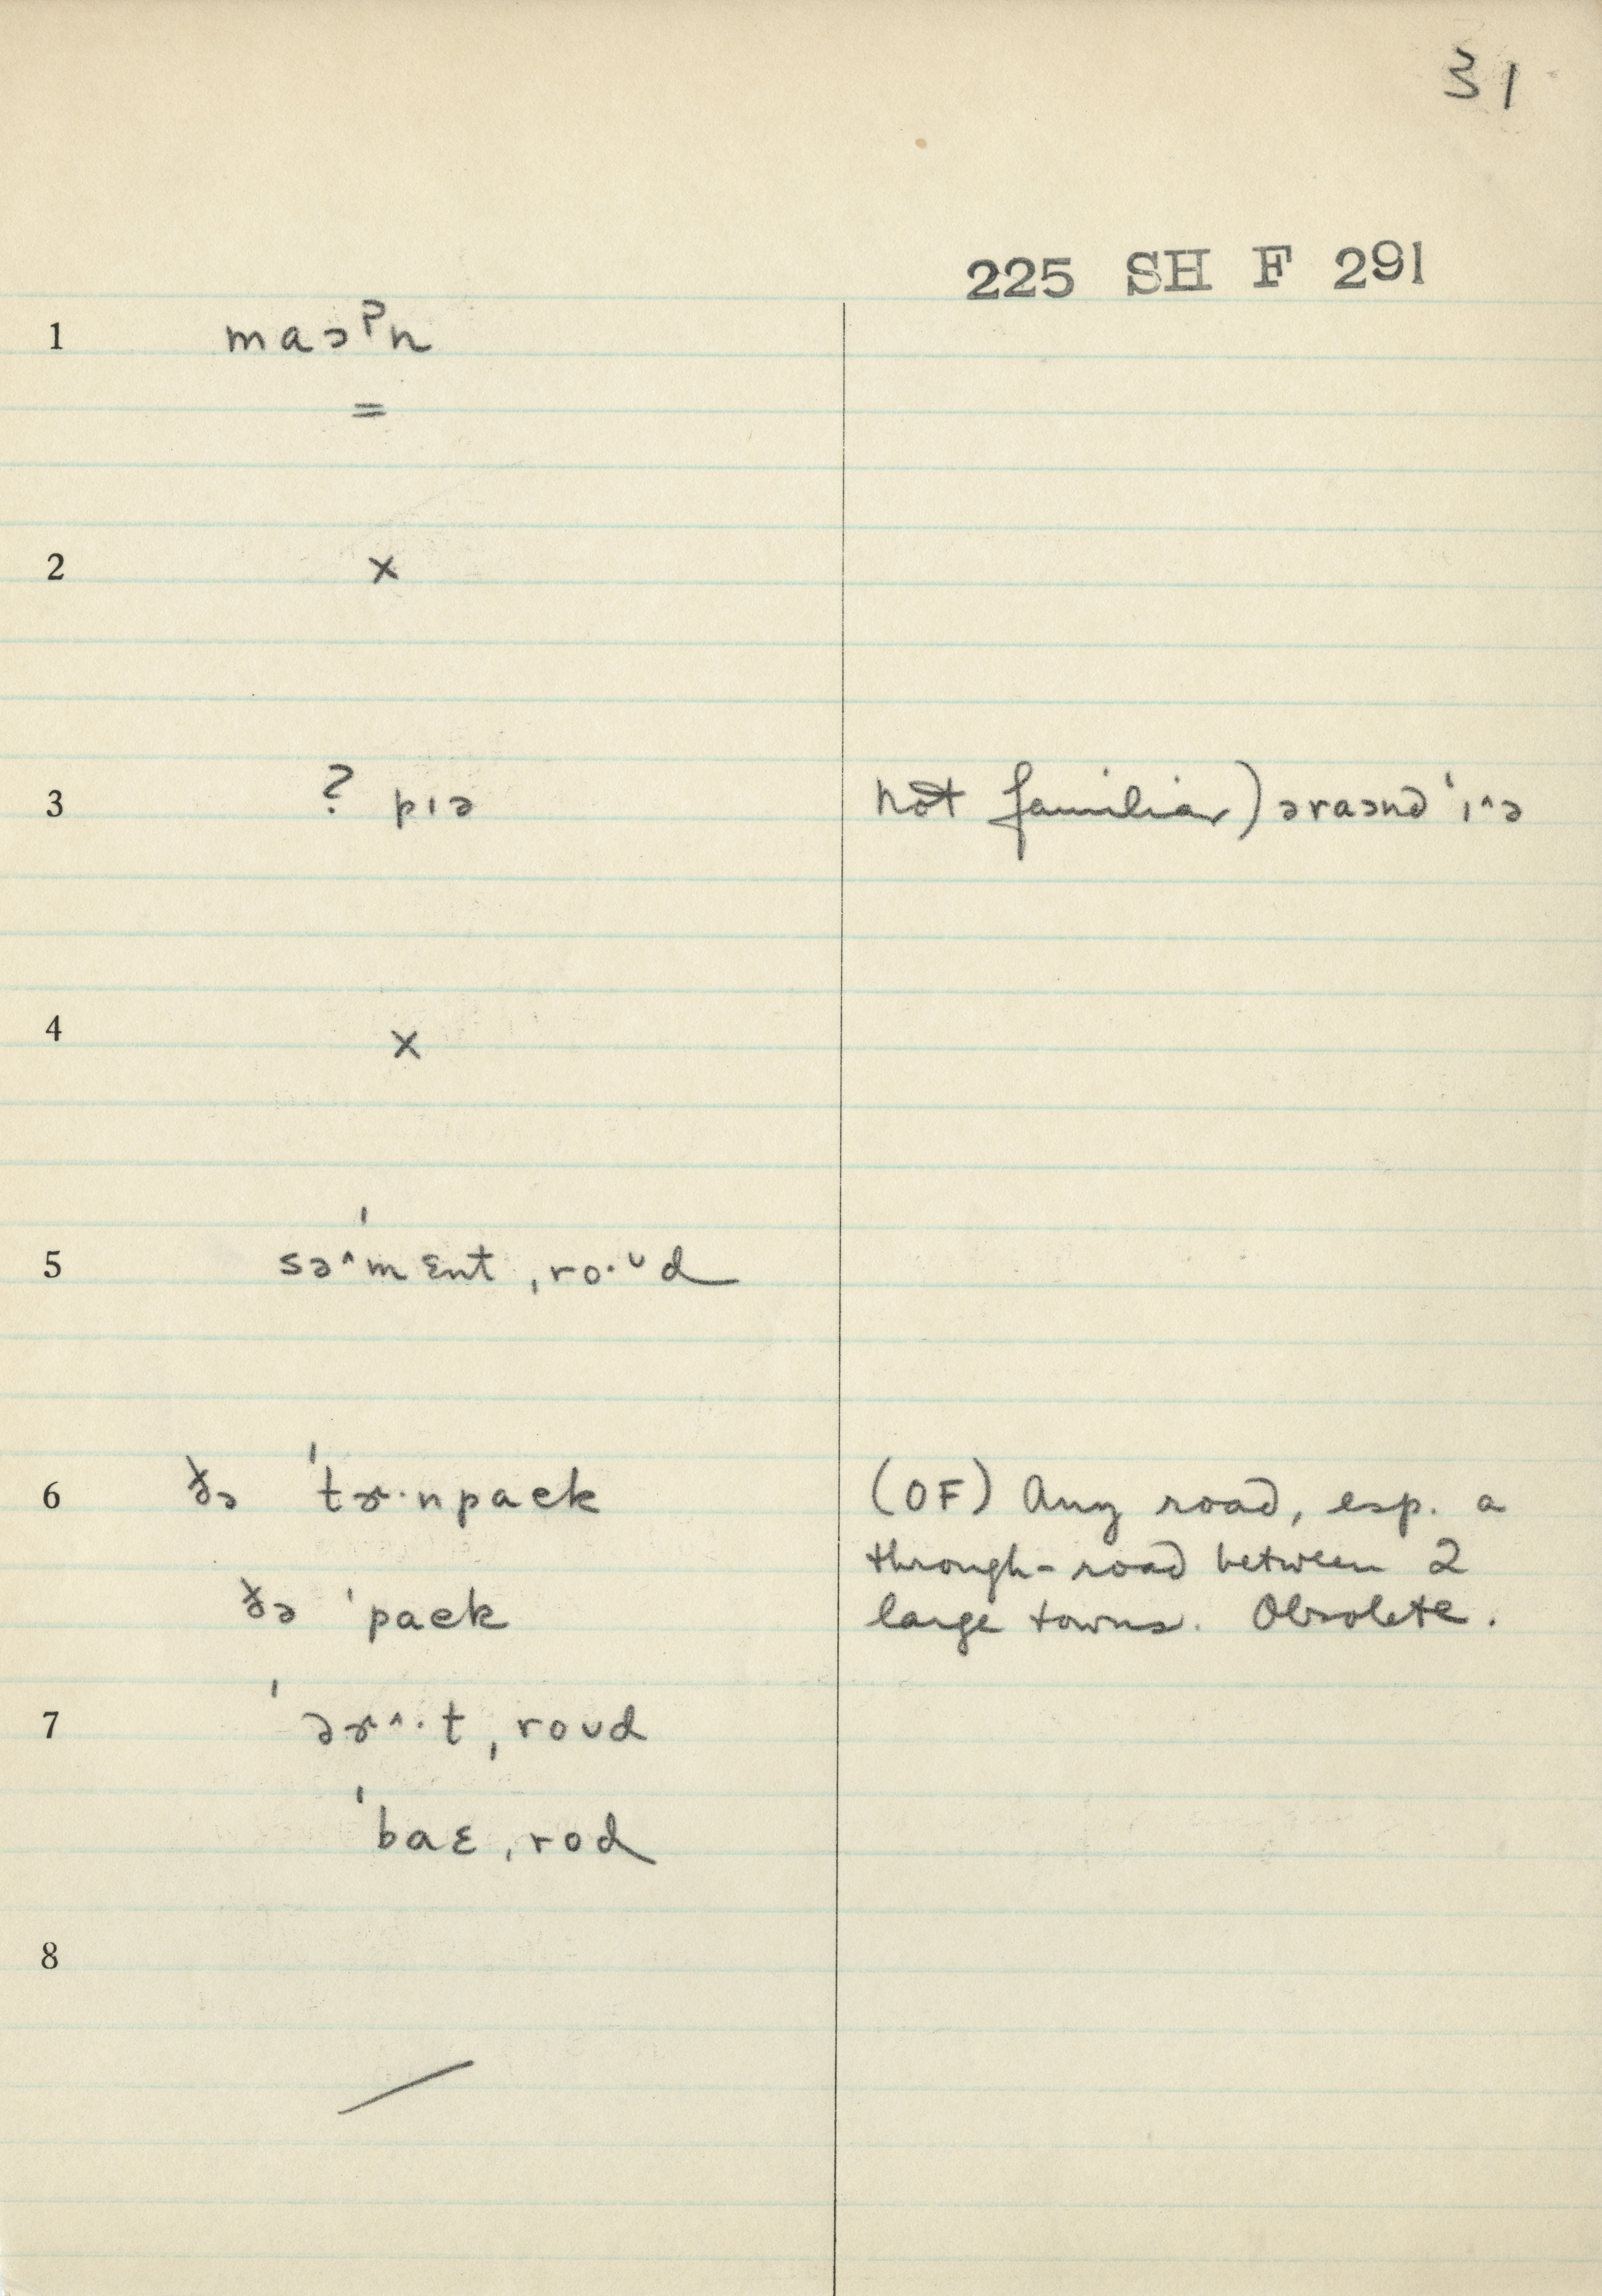 31
225 SH F 291
1 maɔˀn
=
2 ×
3 ? pɪə not familiar) əraənd ˈɪ^ə
4 ×
5 ˈsə^mɛnt ˌro·ᴜd
6 ðə ˈtɚ·npaek (OF) Any road, esp. a
through-road between 2
ðə ˈpaek large towns. Obsolete.
7 ˈəɚ^·t ˌroᴜd
ˈbaɛ ˌrod
8
/